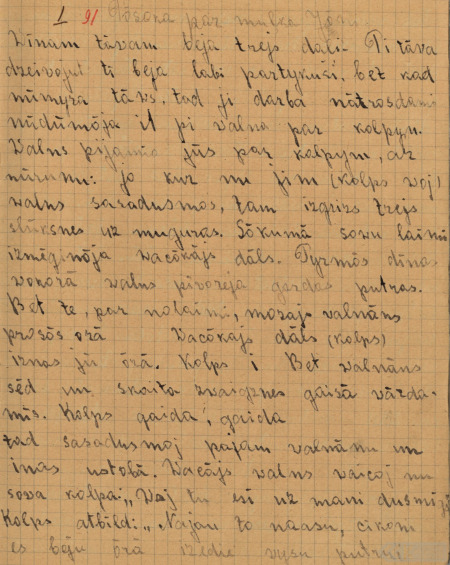 1 91 Pōsoka par mulka Jōni.
Wīnam tāvam bejä trejs dāli. Pi tāva
dzeivojūt ti beja labi partykuši, bet kad
nūmyra tāws, tad ji darba nātrosdami
nūdūmōja īt pi walna par kolpym.
Walns pijāmä jūs par kolpym, ar
nūrunu: jo kur nu jim (kolps woj)
walns sasadusmos, tam izgrīzs trejs
slūksnes uz muguras. Sōkumā sowu laimi
izmēginōja wacōkajs dāls. Pyrmōs dīnas
wokorā walns pīvōreja gordas putras.
Bet te, par nolaimi, mozajs valnāns
prosōs orā Wacōkajs dāls (kolps)
iznas jū ōrā. Kolps i Bet walnāns
sēd un skaita zwaigznes gaisā vārda-
mīs. Kolps gaida, gaida
tad sasadusmoj pajam valnānu un
inas ustobā. Wacājs walns vaicoj nu
sowa kolpa: „Woj tu esi uz mani dusmigs
Kolps atbild: „Najau to naasu, cikom
es beju ōrā izedie vysu putru